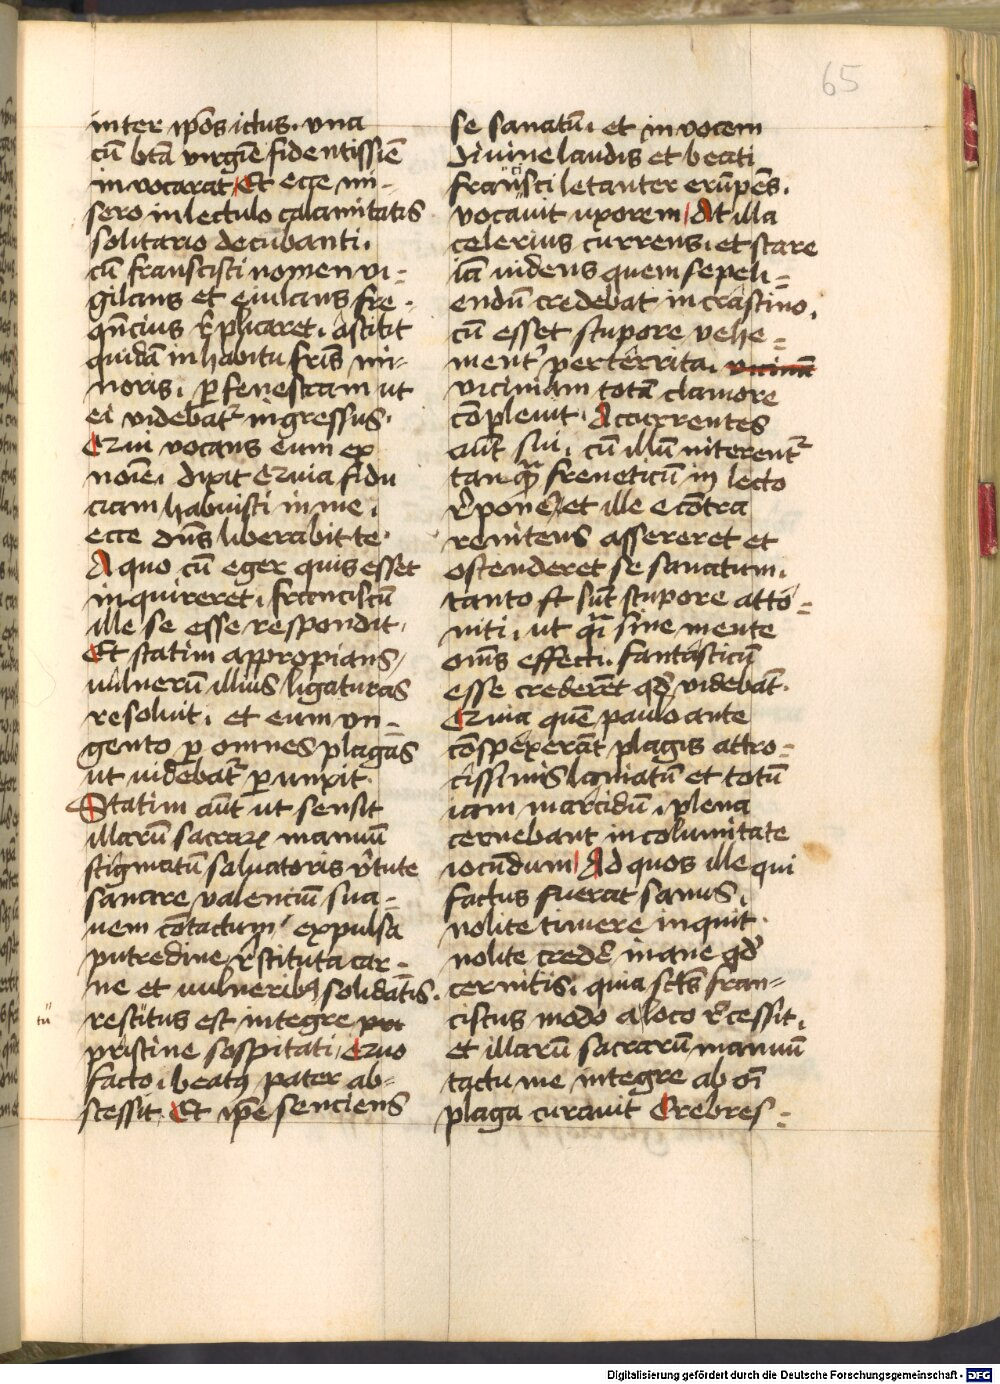 65
inter ip̄os ictus. vna
cū bt̄a virgīe fidentissīē
invocarat Et ecce mi-
sero in lectulo calamitatis
solitario decubanti.
cū franscisci nomen vi-
gilans et eiulans fre-
qn̄cius r̄plicaret. astitit
quidā in habitu frīs mi-
noris. p fenestram ut
ei videbat᷑ ingressus.
Qui vocans eum ex
noīe. dixit Quia fidu
ciam habuisti in me.
ecce dn̄s liberabit te.
A quo cū eger quis esset
inquireret. franciscū
ille se esse respondit.
Et statim appropians,
vulnerū illius ligaturas
resoluit. et eum vn-
gento p omnes plagas
ut videbat᷑ p unxit.
Statim aūt ut sensit
illarū sacraꝝ manuū
stigmatū saluatoris v̄tute
sanare valenciū sua-
uem cōtactum expulsa
putredine r̄stituta car-
ne et vulneribꝫ solidatis.
tu
restitus est integre pri
pristine sospitati, Quo
facto. beatꝰ pater ab-
scessit. Et ip̄e senciens
se sanatū. et in vocem
divine laudis et beati
francisci letanter erūpēs.
vocauit uxorem At illa
celerius currens. et stare
iā videns quem sepeli-
endū credebat in crastino.
cū esset stupore vehe-
ment᷑ perterrita. vicinā
viciniam totā clamore
cōpleuit. Accurrentes
aūt sui. cū illū niterent᷑
tanqꝫ freneticū in lecto
r̄pone᷑ et ille econtra
renitens assereret et
ostenderet se sanatum.
tanto st sūt stupore attō-
niti. ut q̄i sine mente
om̄s effecti. fantasticū
esse crederēt qd̄ videbāt.
Quia quē paulo ante
cōspexerāt plagis attro-
cissimis laniatū et totū
iam marcidū. plena
cernebant incolumitate
iocūdum Ad quos ille qui
factus fuerat sanus.
nolite timere inquit
nolite crede᷑ inane qd̄
cernitis. quia sct̄s fran-
ciscus modo a loco r̄cessit.
et illarū sacrarū manuū
tactu me integre ab oī
plaga curauit Crebres-
Digitalisierung gefördert durch die Deutsche Forschungsgemeinschaft - DFG